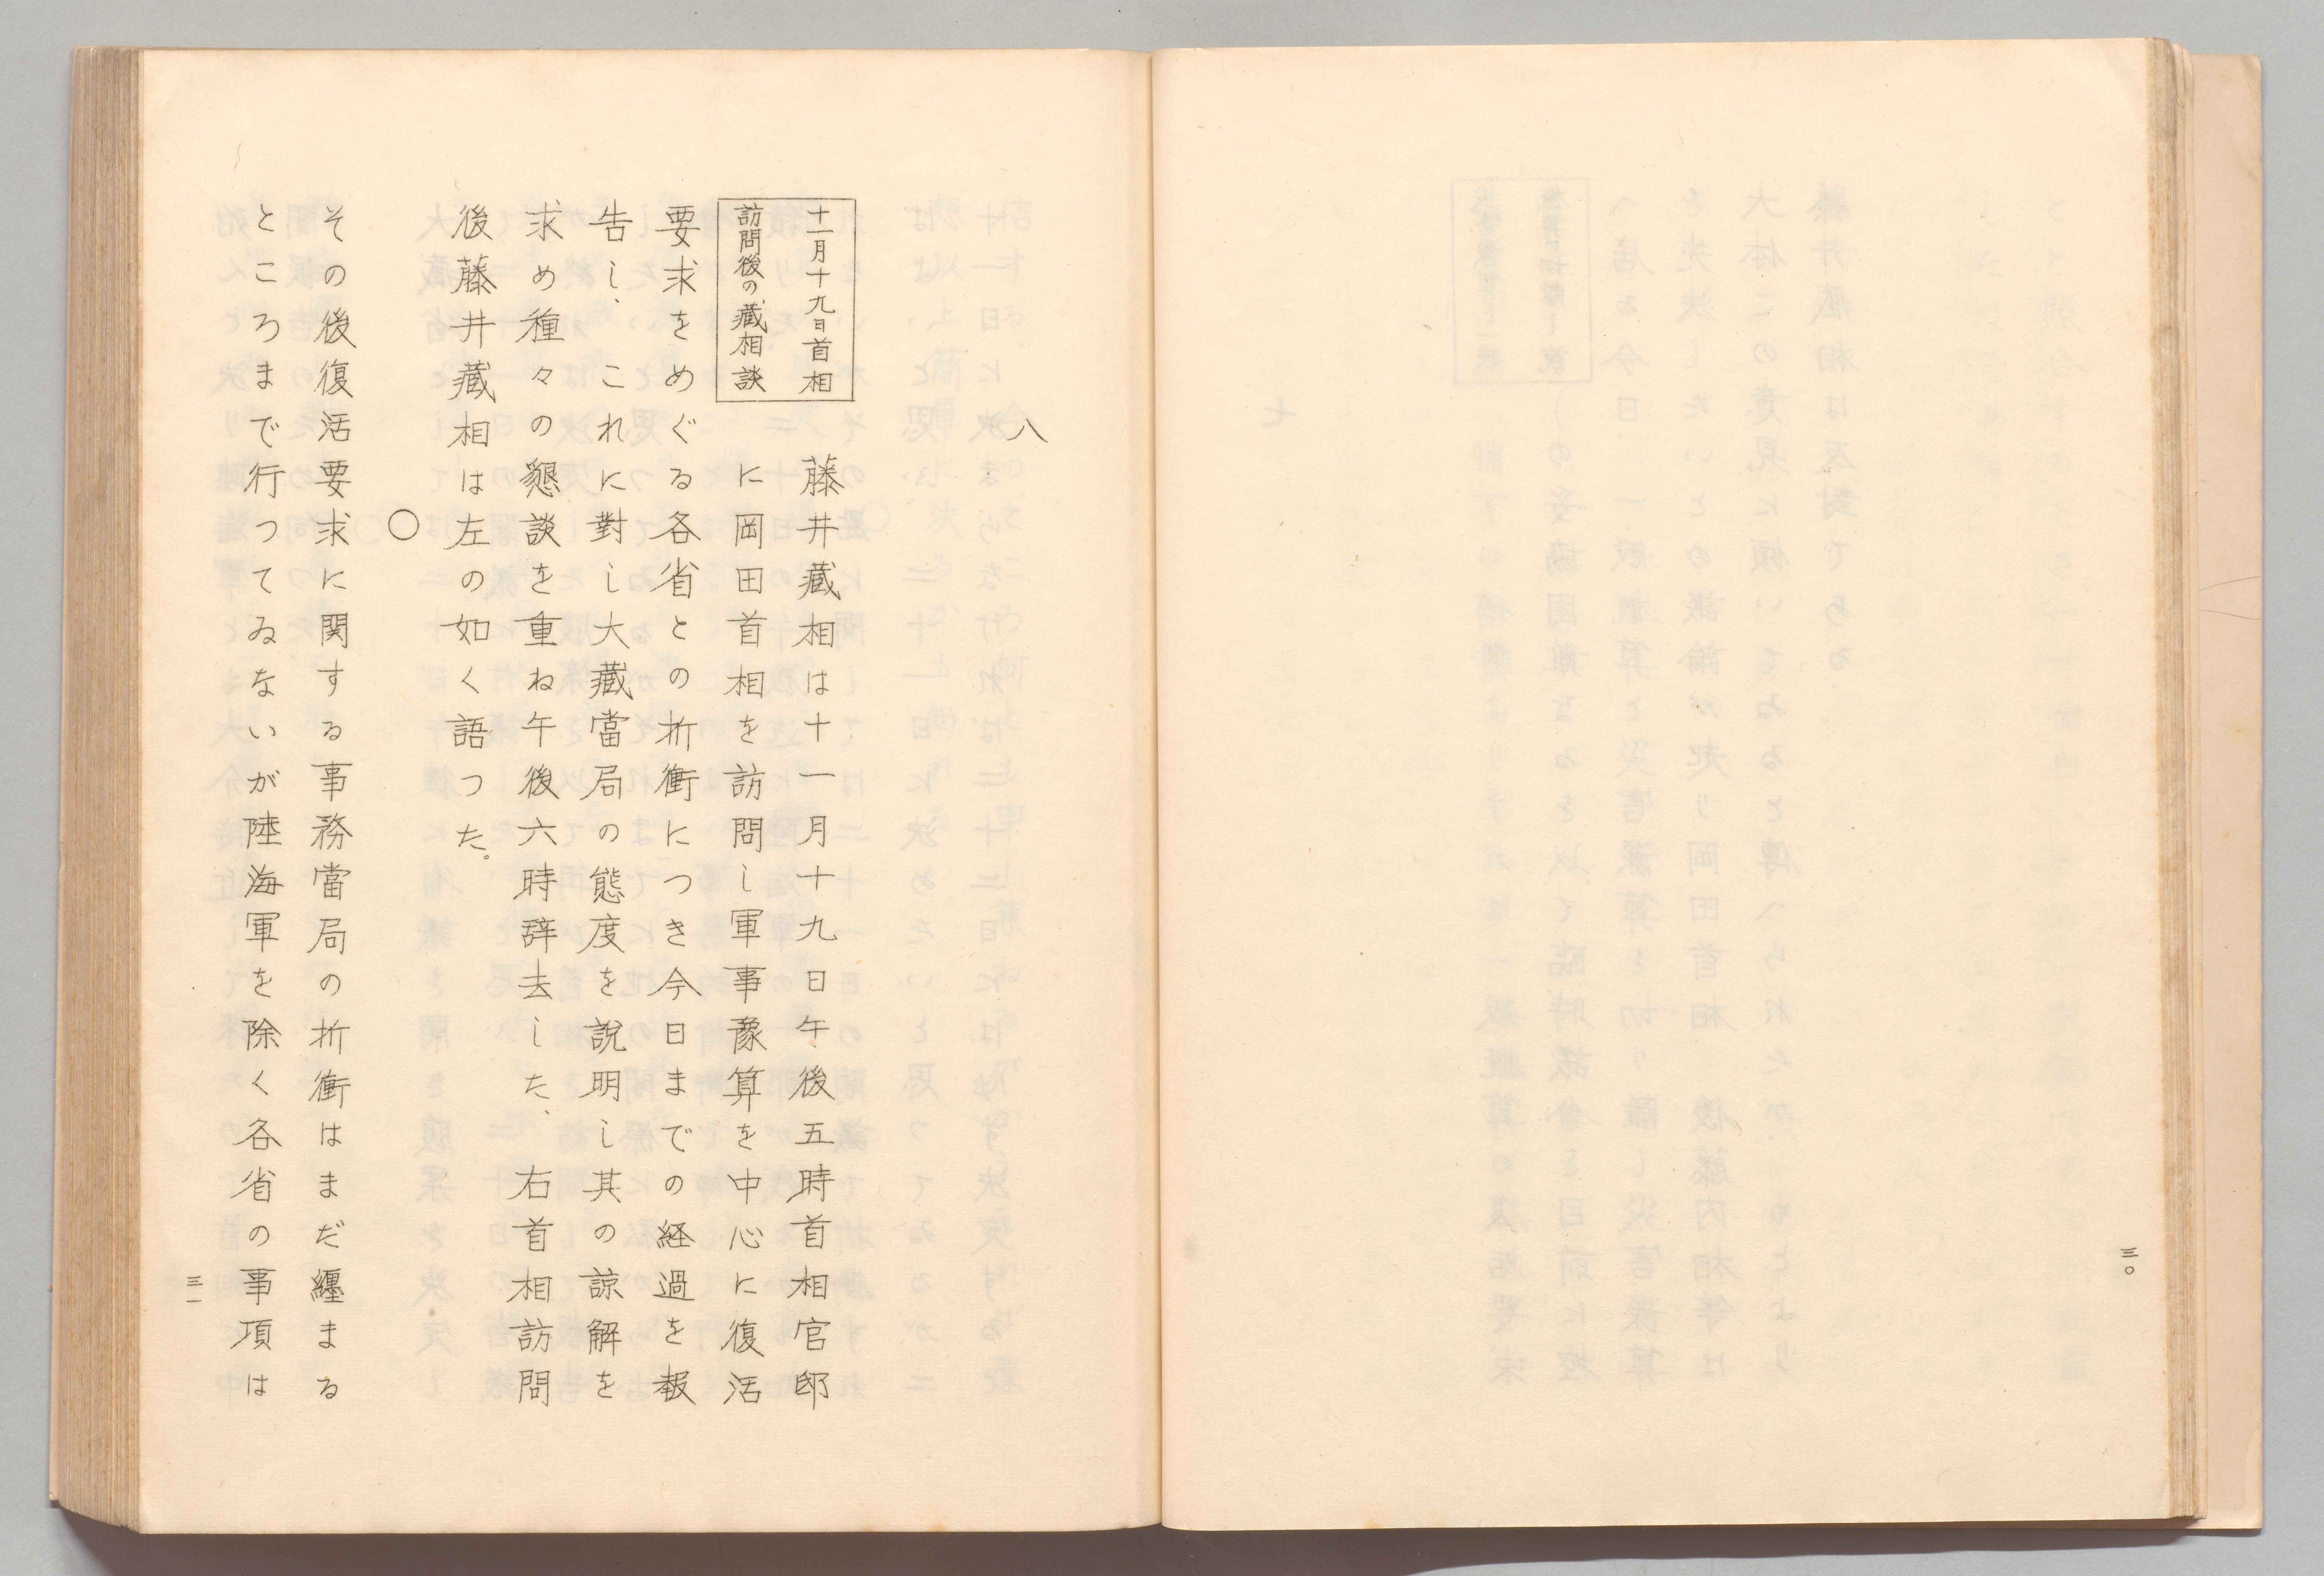 三〇
八
十一月十九日首相
訪問後の藏相談
藤井藏相は十一月十九日午後五時首相官邸
に岡田首相を訪問し軍事豫算を中心に復活
要求をめぐる各省との折衝につき今日までの経過を報
告し、これに對し大藏當局の態度を説明し其の諒解を
求め種々の懇談を重ね午後六時辞去した、右首相訪問
後藤井藏相は左の如く語つた。
〇
その後復活要求に関する事務當局の折衝はまだ纒まる
ところまで行つてゐないが陸海軍を除く各省の事項は
三一